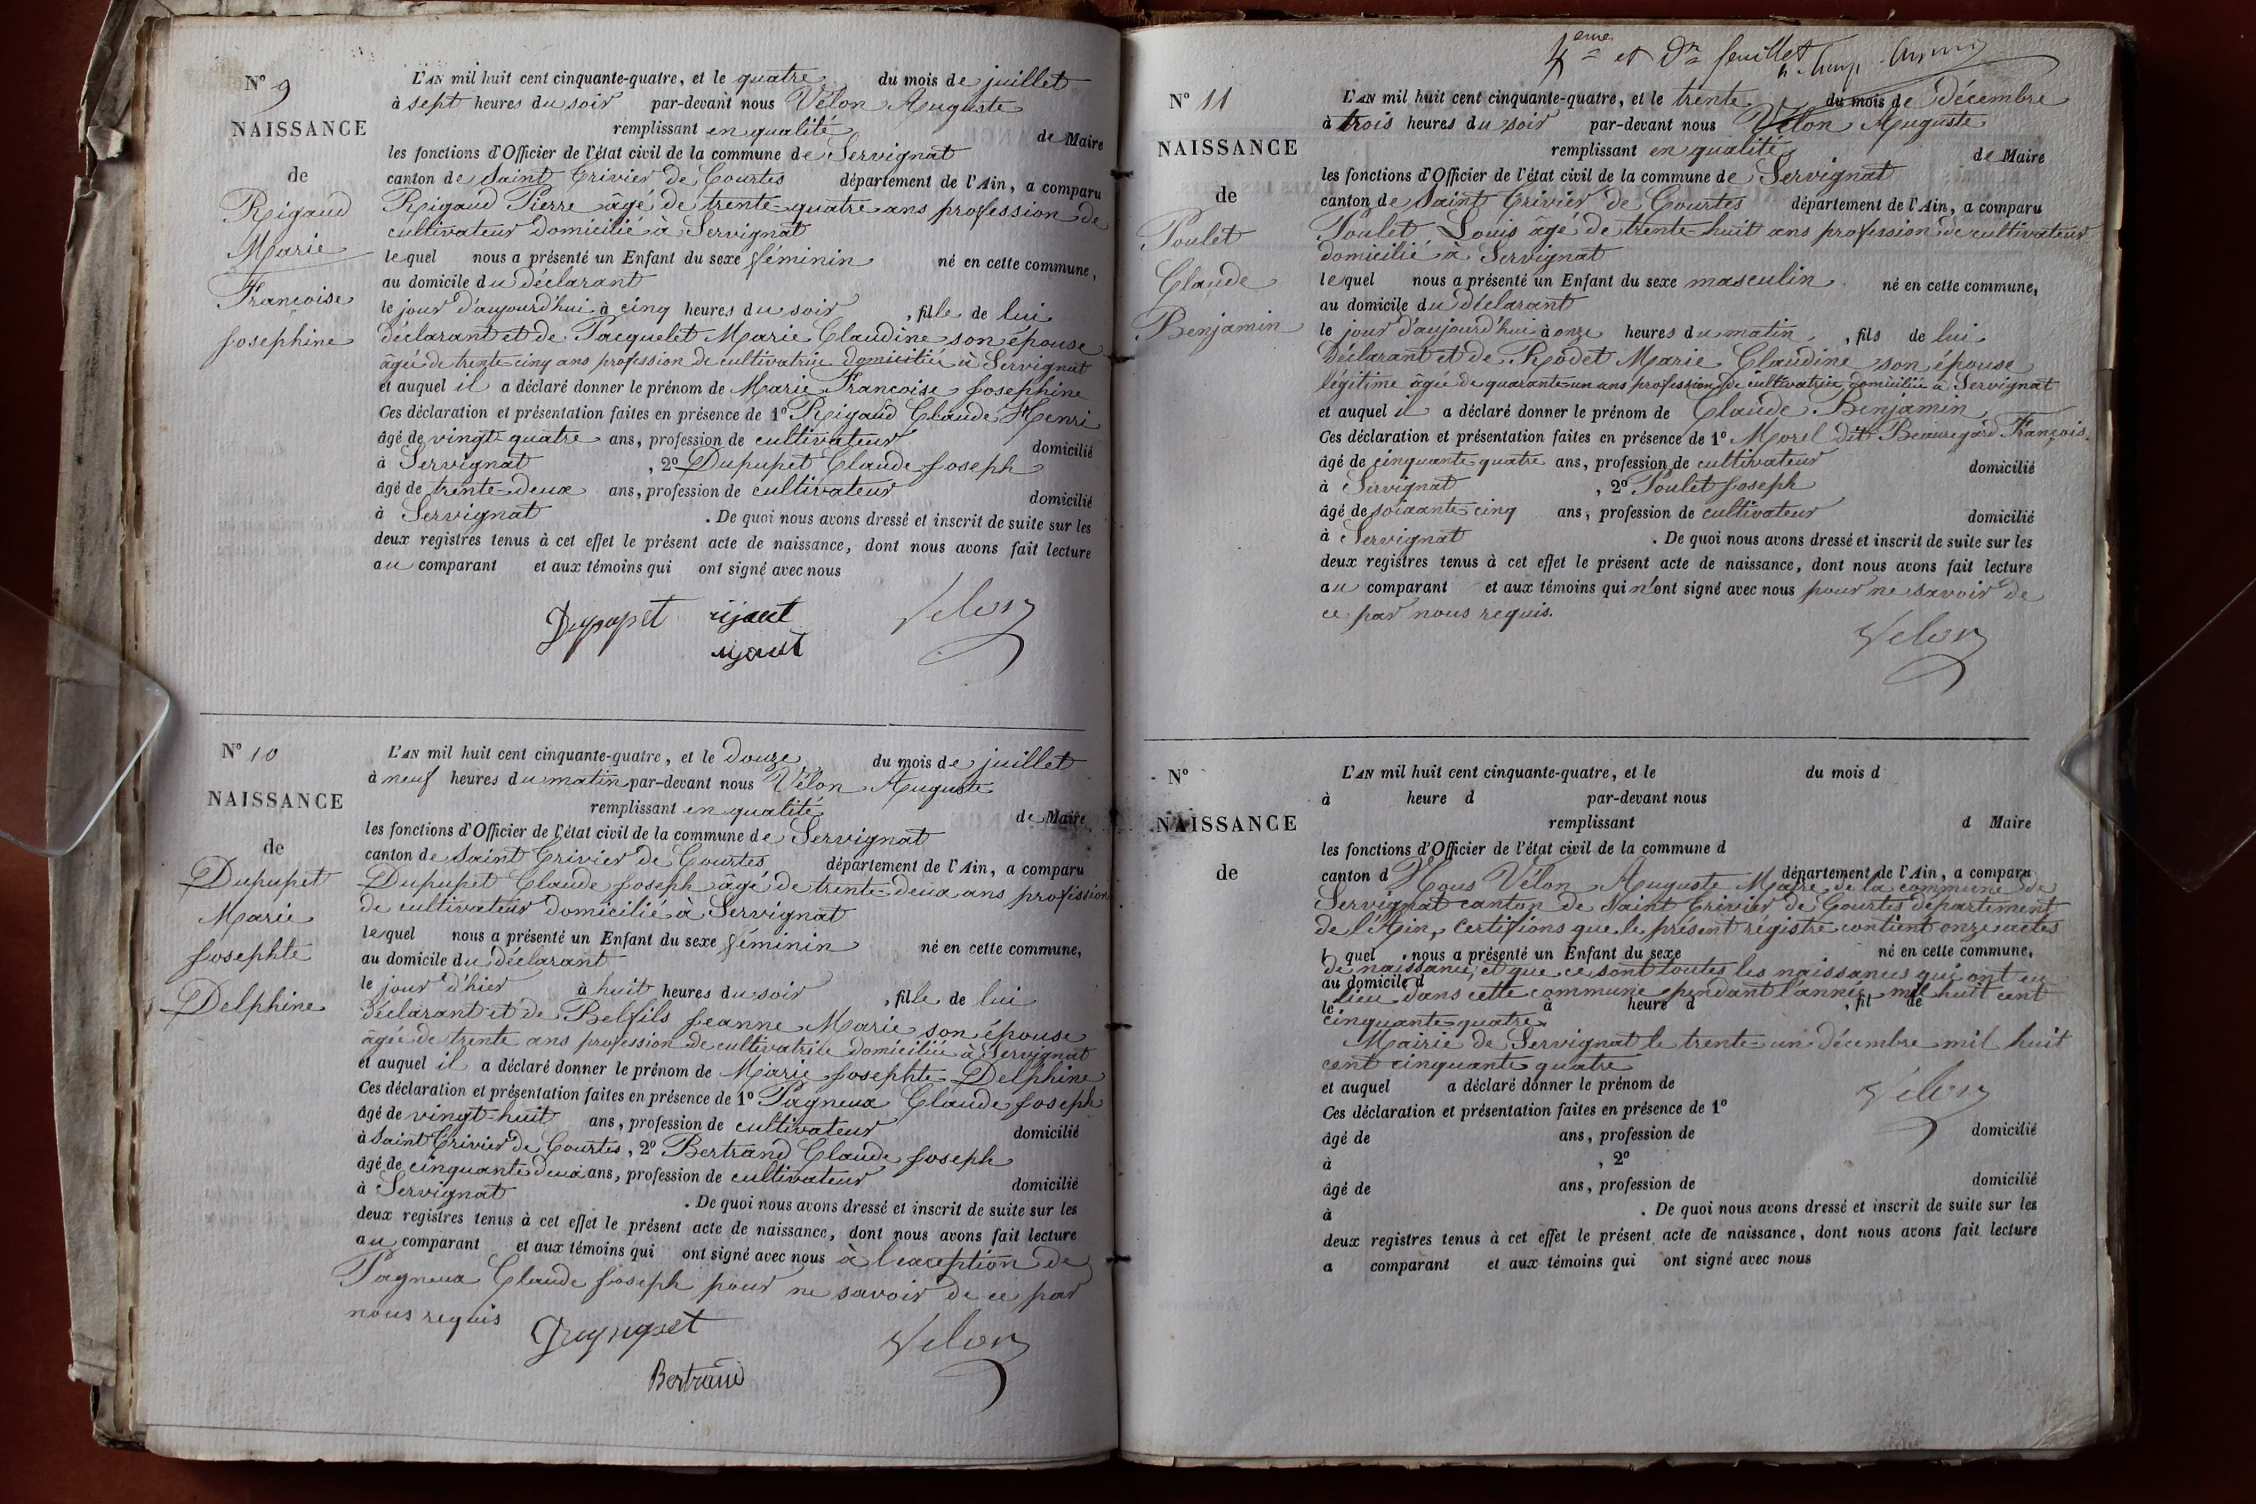 N° 9
NAISSANCE
de
Rigaud
Marie
Francoise
Josephine
L'AN mil huit cent cinquante-quatre, et le quatre du mois de juillet
à sept heures du soir par-devant nous Vélon Auguste
remplissant en qualité de Maire
les fonctions d'Officier de l'état civil de la commune de Servignat
canton de Saint Trivier de Courtes département de l'Ain, a comparu
Rigaud Pierre âgé de trente-quatre ans profession de
cultivateur domicilié à Servignat
lequel nous a présenté un Enfant du sexe féminin né en cette commune,
au domicile du déclarant
le jour d'aujourd'hui à cinq heures du soir, fille de lui
déclarant et de Pacquelet Marie Claudine son épouse
âgée de trente-cinq ans profession de cultivatrice domiciliée à Servignat
et auquel il a déclaré donner le prénom de Marie Francoise Josephine
Ces déclaration et présentation faites en présence de 1° Rigaud Claude Henri
âgé de vingt-quatre ans, profession de cultivateur domicilié
à Servignat, 2° Dupupet Claude Joseph
âgé de trente-deux ans, profession de cultivateur domicilié
à Servignat. De quoi nous avons dressé et inscrit de suite sur les
deux registres tenus à cet effet le présent acte de naissance, dont nous avons fait lecture
au comparant et aux témoins qui ont signé avec nous
Dupupet rijaut Velon
rijaut
N° 10
NAISSANCE
de
Dupupet
Marie
Josephte
Delphine
L'AN mil huit cent cinquante-quatre, et le douze du mois de juillet
à neuf heures du matin par-devant nous Vélon Auguste
remplissant en qualité de Maire
les fonctions d'Officier de l'état civil de la commune de Servignat
canton de Saint Trivier de Courtes département de l'Ain, a comparu
Dupupet Claude Joseph âgé de trente-deux ans profession
de cultivateur domicilié à Servignat
lequel nous a présenté un Enfant du sexe féminin né en cette commune,
au domicile du déclarant
le jour d'hier à huit heures du soir, fille de lui
déclarant et de Belfils Jeanne Marie son épouse
âgée de trente ans profession de cultivatrice domiciliée à Servignat
et auquel il a déclaré donner le prénom de Marie Josephte Delphine
Ces déclaration et présentation faites en présence de 1° Pagneux Claude Joseph
âgé de vingt-huit ans, profession de cultivateur domicilié
à Saint Trivier de Courtes, 2° Bertrand Claude Joseph
âgé de cinquante deux ans, profession de cultivateur domicilié
à Servignat. De quoi nous avons dressé et inscrit de suite sur les
deux registres tenus à cet effet le présent acte de naissance, dont nous avons fait lecture
au comparant et aux témoins qui ont signé avec nous à l'exception de
Pagneux Claude Joseph pour ne savoir de ce par
nous requis
Dupupet Velon
Bertrand
4eme et dr feuillet
N° 11
NAISSANCE
de
Poulet
Claude
Benjamin
L'AN mil huit cent cinquante-quatre, et le trente du mois de décembre
à trois heures du soir par-devant nous Vélon Auguste
remplissant en qualité de Maire
les fonctions d'Officier de l'état civil de la commune de Servignat
canton de Saint Trivier de Courtes département de l'Ain, a comparu
Poulet Louis âgé de trente-huit ans profession de cultivateur
domicilié à Servignat
lequel nous a présenté un Enfant du sexe masculin né en cette commune,
au domicile du déclarant
le jour d'aujourd'hui à onze heures du matin, fils de lui
déclarant et de Rodet Marie Claudine son épouse
légitime âgée de quarante-un ans profession de cultivatrice domiciliée à Servignat
et auquel il a déclaré donner le prénom de Claude Benjamin
Ces déclaration et présentation faites en présence de 1° Morel dit Beauregard François
âgé de cinquante quatre ans, profession de cultivateur domicilié
à Servignat, 2° Poulet Joseph
âgé de soixante-cinq ans, profession de cultivateur domicilié
à Servignat. De quoi nous avons dressé et inscrit de suite sur les
deux registres tenus à cet effet le présent acte de naissance, dont nous avons fait lecture
au comparant et aux témoins qui n'ont signé avec nous pour ne savoir de
ce par nous requis.
Velon
N°
NAISSANCE
de
L'AN mil huit cent cinquante-quatre, et le du mois d
à heure d par-devant nous
remplissant d Maire
les fonctions d'Officier de l'état civil de la commune d
canton d département de l'Ain, a comparu
Nous Vélon Auguste Maire de la commune de
Servignat canton de Saint Trivier de Courtes département
de l'Ain, certifions que le présent régistre contient onze actes
l quel nous a présenté un Enfant du sexe né en cette commune,
de naissance, et que ce sont toutes les naissances qui ont eu
au domicile d
lieu dans cette commune pendant l'année mil huit cent
le à heure d, fil de
cinquante-quatre.
Mairie de Servignat le trente-un décembre mil huit
cent cinquante quatre
et auquel a déclaré donner le prénom de
Velon
Ces déclaration et présentation faites en présence de 1°
âgé de ans, profession de domicilié
à , 2°
âgé de ans, profession de domicilié
à . De quoi nous avons dressé et inscrit de suite sur les
deux registres tenus à cet effet le présent acte de naissance, dont nous avons fait lecture
a comparant et aux témoins qui ont signé avec nous